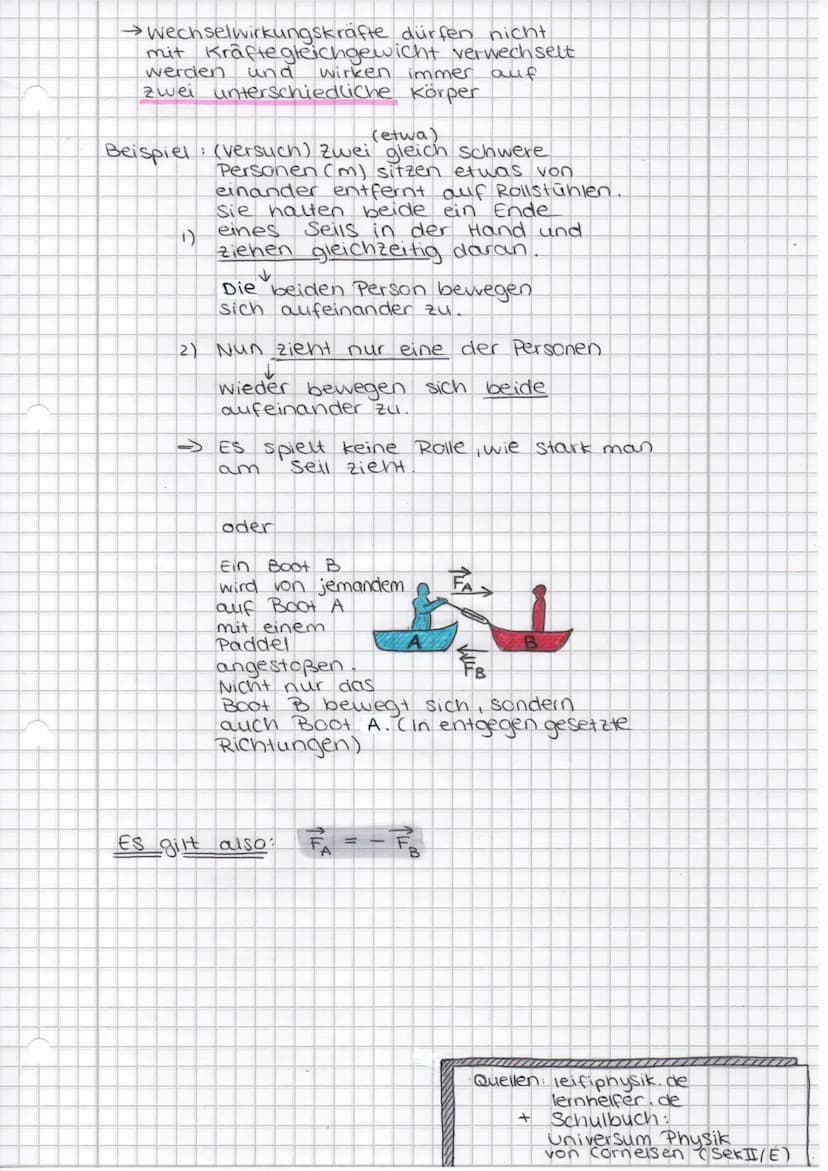 → Wechselwirkungskräfte dürfen nicht
mit Kräftegleichgewicht verwechselt
werden und wirken immer auf
zwei unterschiedliche Körper
(etwa)
Beispiel: (Versuch) Zwei gleich schwere
Personen (m) sitzen etwas von
einander entfernt auf Rollstühlen.
Sie halten beide ein Ende
1) eines Seils in der Hand und
ziehen gleichzeitig daran.
↓
Die beiden Person bewegen
sich aufeinander zu.
2) Nun zieht nur eine der Personen
↓
Wieder bewegen sich beide
aufeinander zu.
⇒ Es spielt keine Rolle, wie stark man
am Seil zieht.
oder
Ein Boot B
wird von jemandem
auf Boot A
mit einem
Paddel
angestoßen.
Nicht nur das
Boot B bewegt sich, sondern
auch Boot A. (In entgegen gesetzte
Richtungen)
F⃗A
A
B
F⃗B
Es gilt also: F⃗A = - F⃗B
Quellen: leifiphysik.de
lernhelfer.de
+ Schulbuch:
Universum Physik
von Cornelsen (Sek II/E)